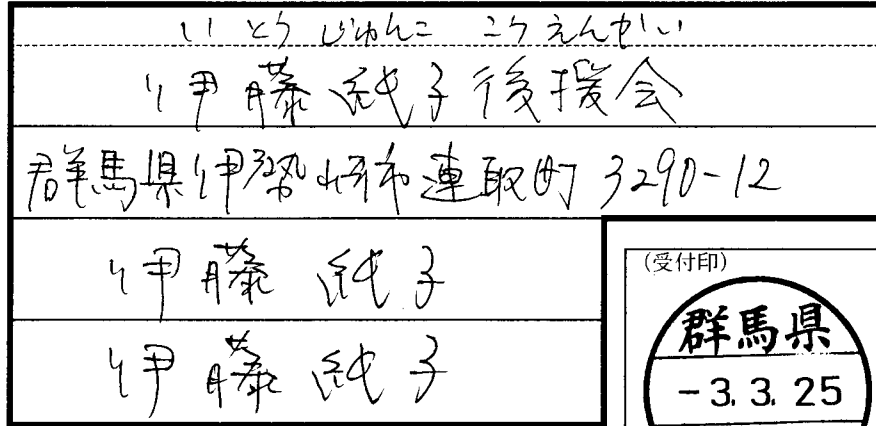 いとうじゅんこ こうえんかい
伊藤純子後援会
群馬県伊勢崎市連取町3290-12
伊藤 純子
伊藤 純子
(受付印)
群馬県
-3.3.25